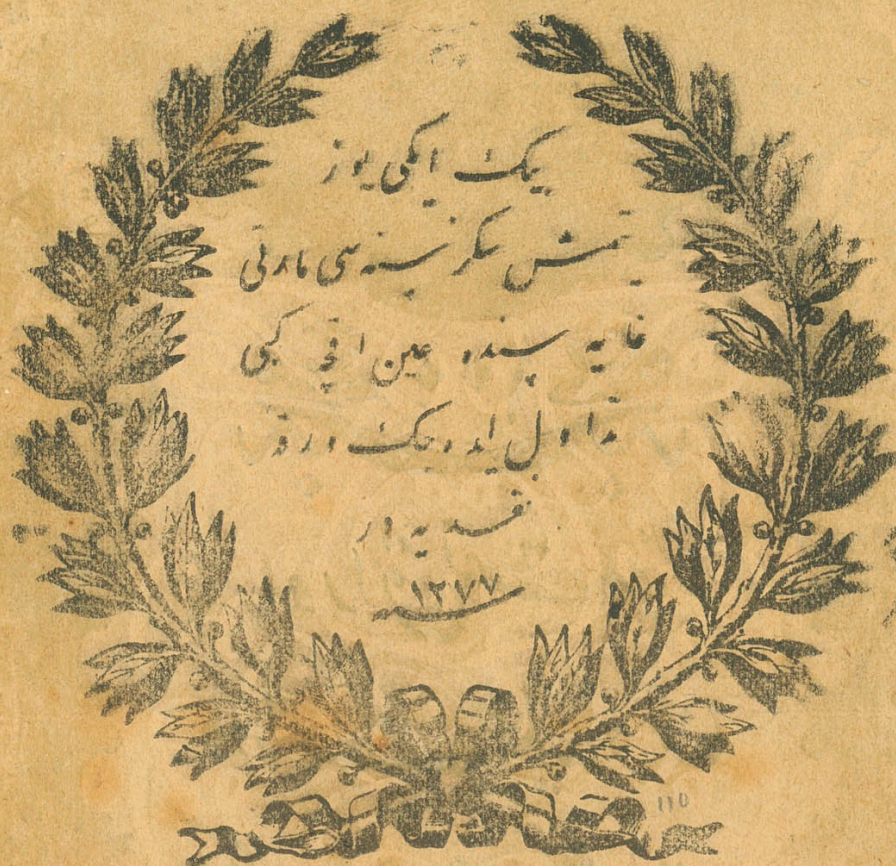 بیك ایكی یوز
یتمش سكز سنه سی مارتی
غایه سنده عین اقچه كبی
تداول ایده جك ورقه
نقدیه در
سنه ١٢٧٧
110